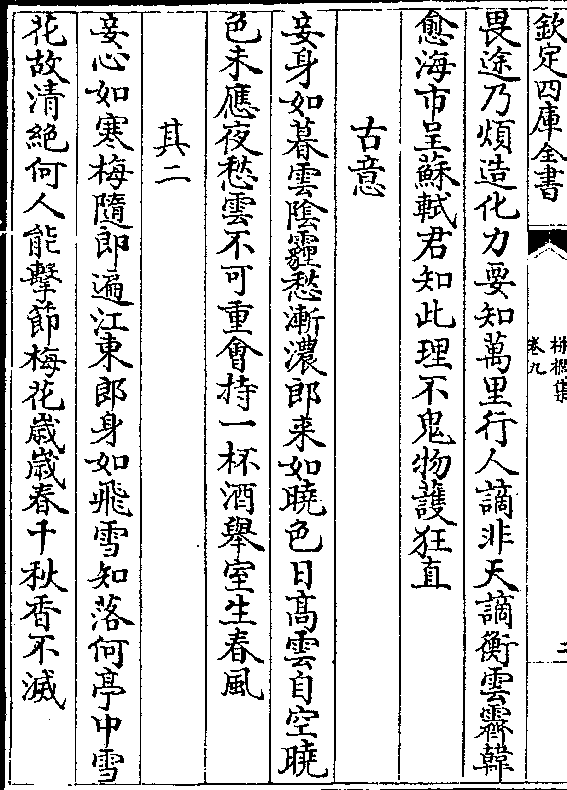 欽定四庫全書
栟櫚集
卷九
畏途乃煩造化力要知萬里行人謫非天謫衡雲霽韓
愈海市呈蘇軾君知此理不鬼物護狂直
古意
妾身如暮雲陰霾愁漸濃郎来如曉色日髙雲自空曉
色未應夜愁雲不可重會持一杯酒舉室生春風
其二
妾心如寒梅隨郎遍江東郎身如飛雪知落何亭中雪
花故清絶何人能擊節梅花歳歳春千秋香不滅